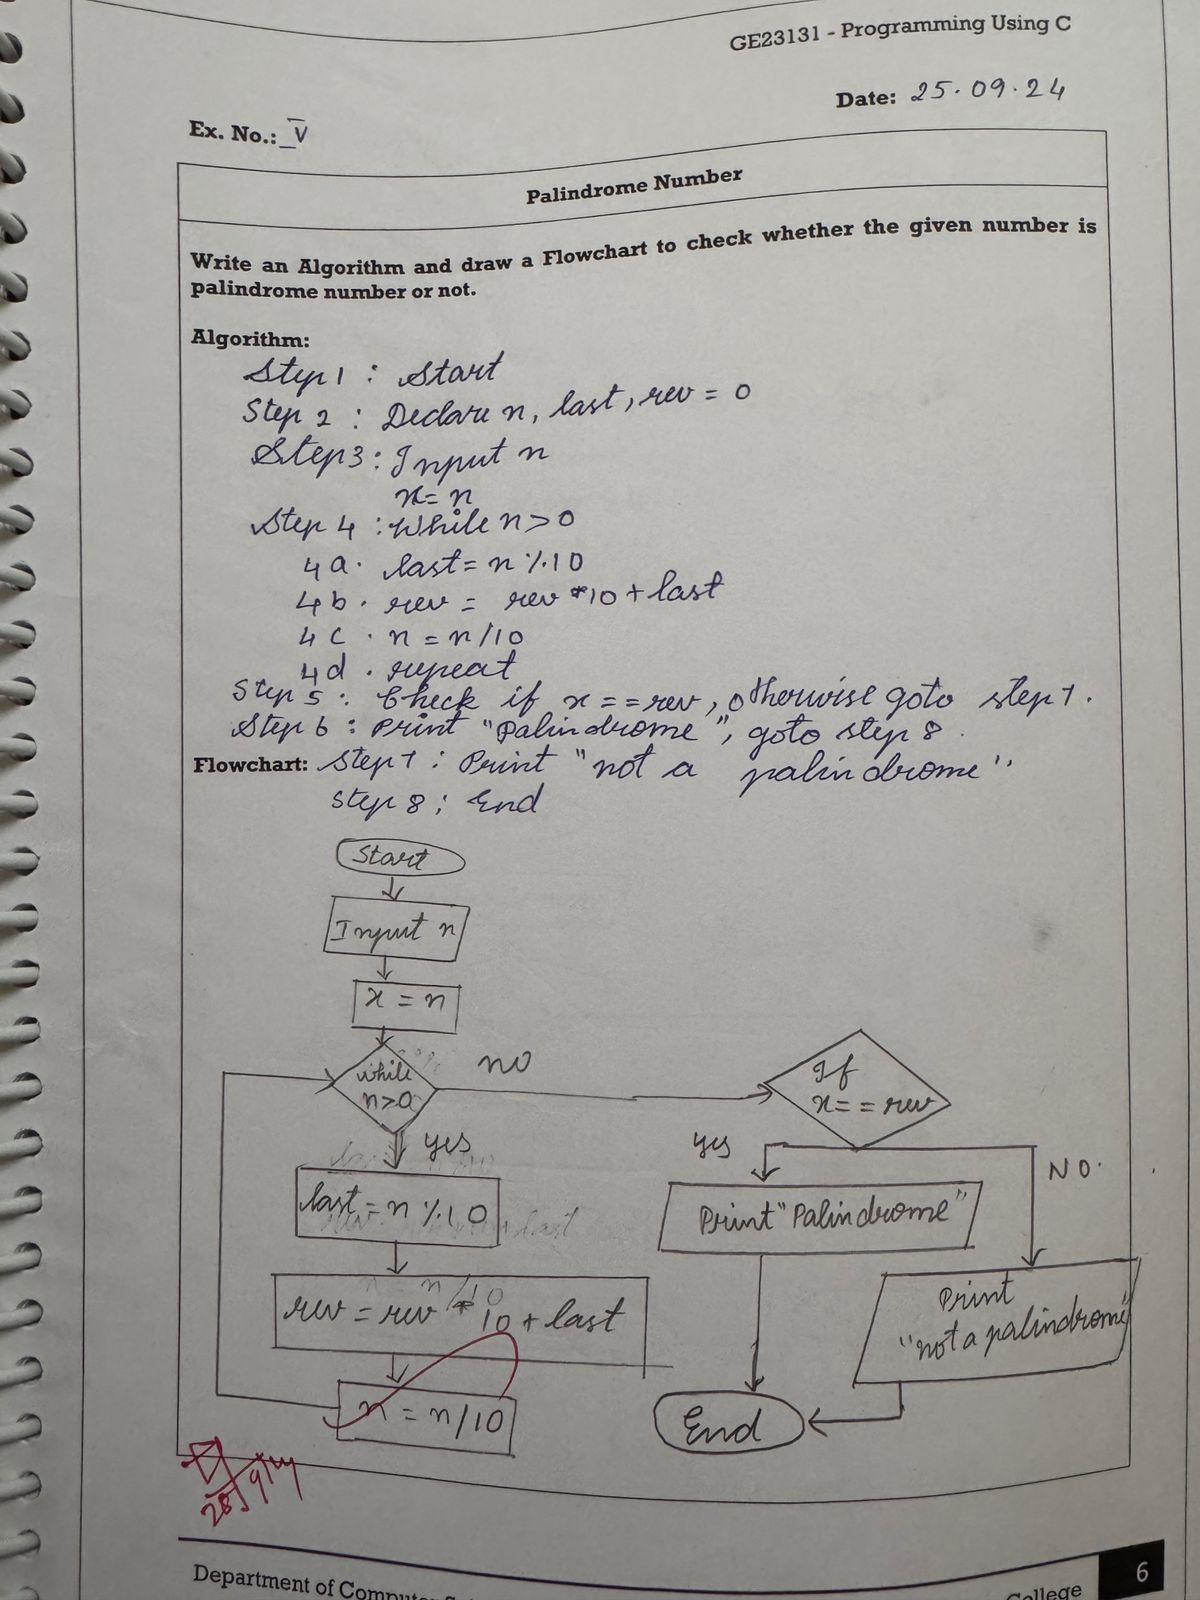 GE23131 - Programming Using C
Date: 25.09.24
Ex. No.: V
Palindrome Number
Write an Algorithm and draw a Flowchart to check whether the given number is
palindrome number or not.
Algorithm:
Step 1 : Start
Step 2 : Declare n, last, rev = 0
Step 3 : Input n
x = n
Step 4 : While n > 0
4a. last = n % 10
4b. rev = rev * 10 + last
4c. n = n/10
4d. repeat
Step 5 : Check if x == rev, otherwise goto step 7.
Step 6 : Print "Palindrome", goto step 8.
Flowchart: Step 7 : Print "not a palindrome"
Step 8 : End
Start
Input n
x = n
while
n>0
no
If
x == rev
yes
yes
NO.
last = n % 10
Print "Palindrome"
rev = rev * 10 + last
Print
"not a palindrome"
n = n/10
End
Department of
College
6